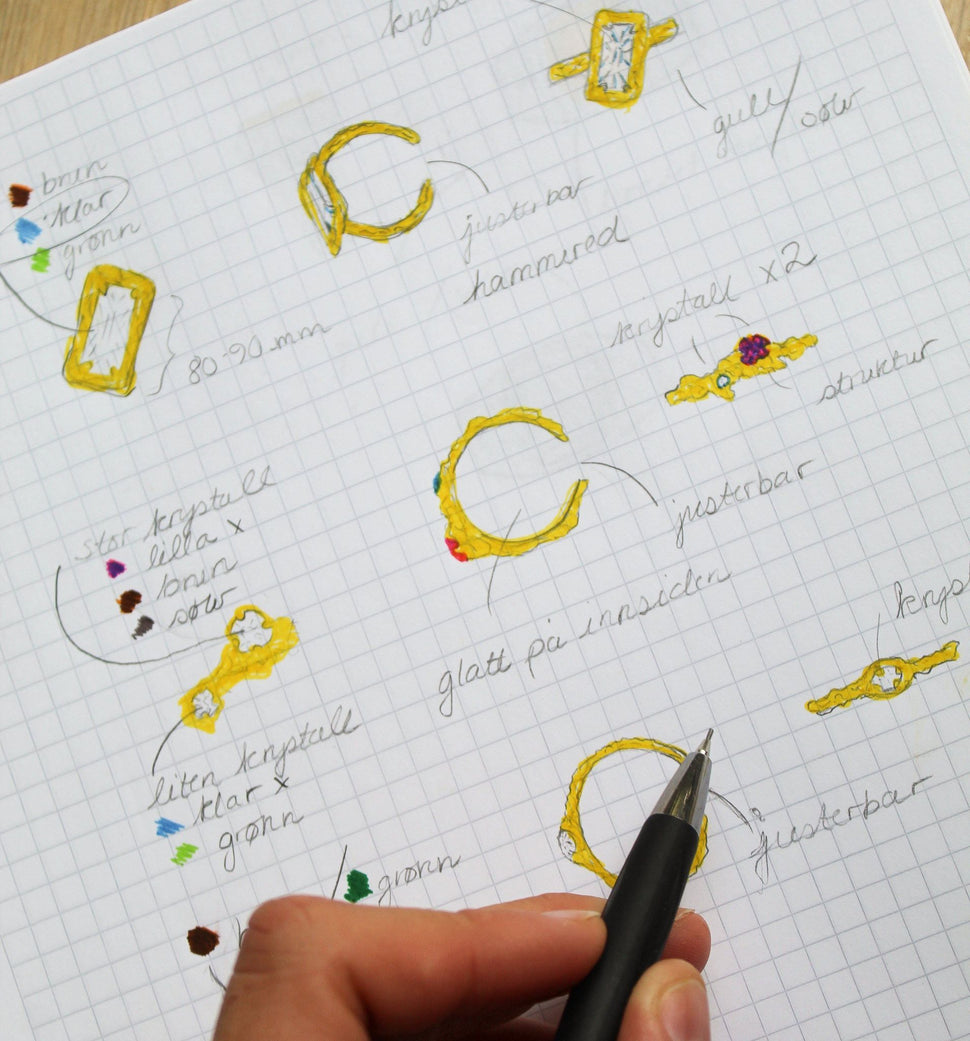 gull/
sølv
brun
klar
grønn
justerbar
hammered
80-90 mm
krystall x2
struktur
stor krystall
lilla x
brun
sølv
justerbar
glatt på innsiden
liten krystall
klar x
grønn
justerbar
grønn